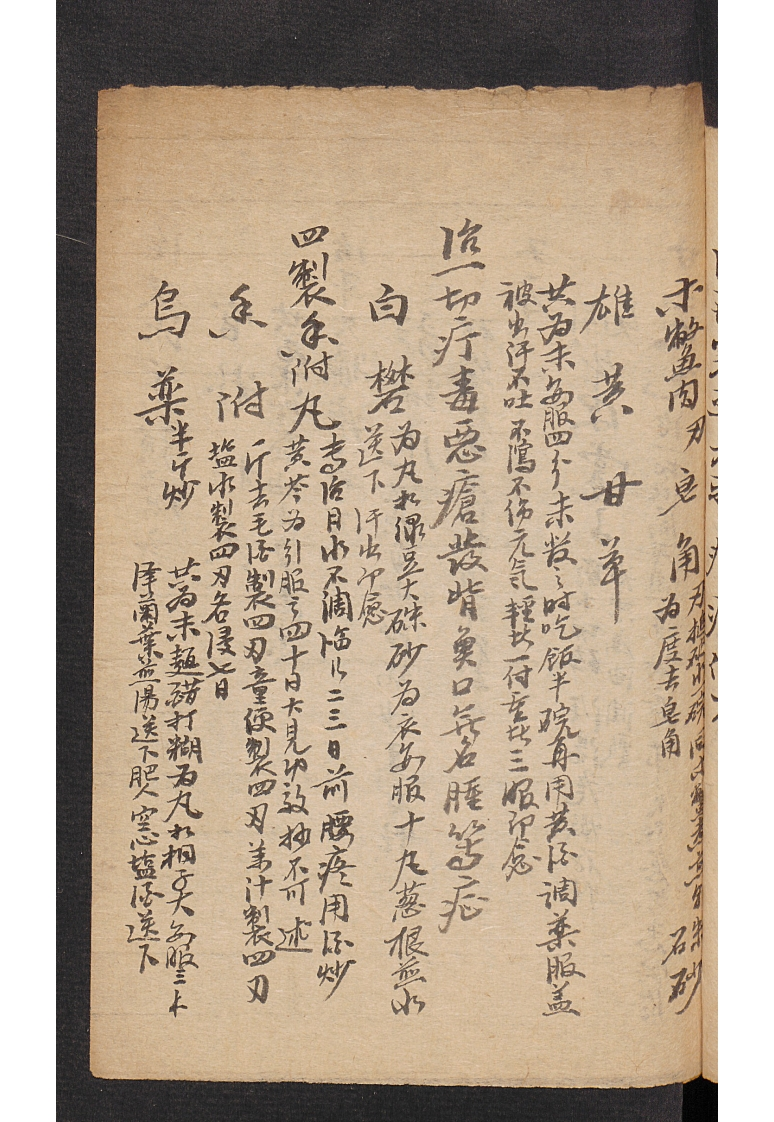 木鱉肉刃 皂角
為度去皂角
石砂
雄黄 甘草
共為末每服四分未散之時吃飯半碗再用黄酒調藥服盖
被出汗不吐不瀉不傷元氣輕者一付重者三服即愈
治一切疔毒惡瘡發背魚口無名腫等症
白礬 為丸如綠豆大硃砂為衣每服十丸葱根煎水
送下汗出即愈
四製香附丸 專治月水不調臨行二三日前腰疼用酒炒
黄芩為引服之四十日大見功效抄不可述
香附 斤去毛酒製四刃童便製四刃姜汁製四刃
塩水製四刃各浸七日
烏藥 半斤炒 共為末麺醋打糊為丸如桐子大每服三卜
澤蘭葉煎湯送下肥人空心塩酒送下